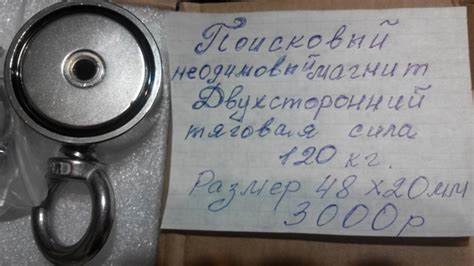 Поисковый
неодимовый магнит
Двухсторонний
тяговая сила
120 кг.
Размер 48х20мм
3000р